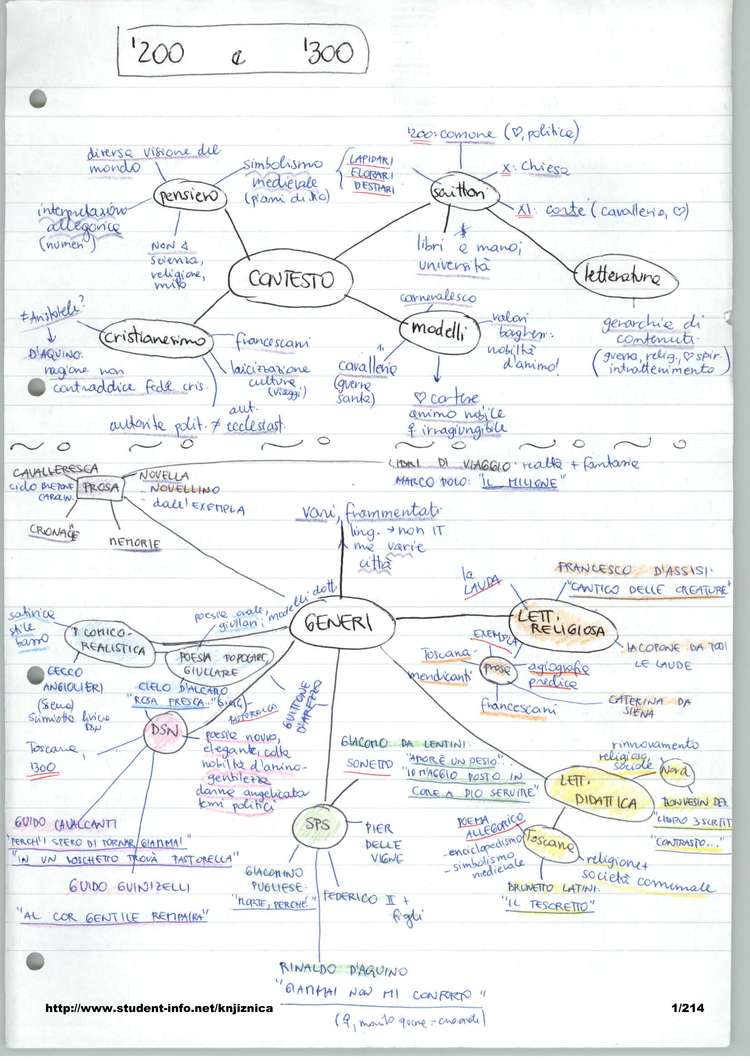 '200 e '300
diversa visione del
mondo
pensiero
simbolismo
medievale
(piani di Dio)
LAPIDARI
ERBARI
BESTIARI
interpretazione
allegorica
(numeri)
NON ≠
scienza,
religione,
mito
'200: comune (♡, politica)
X: chiesa
XI: corte (cavalleria, ♡)
scrittori
libri a mano;
università
letteratura
gerarchie di
contenuti
(guerra, relig., ♡ spir.
intrattenimento)
CONTESTO
≠ Aristotele?
D'AQUINO:
ragione non
contraddice fede cris.
cristianesimo
francescani
laicizzazione
culture
(viaggi)
autorità polit. ≠ aut.
ecclesiast.
carnevalesco
modelli
cavalleria
(guerre
sante)
valori
borghesi:
nobiltà
d'animo!
♡ cortese
animo nobile
♀ irraggiungibile
CAVALLERESCA
ciclo BRETONE
CAROLIN.
PROSA
NOVELLA
- NOVELLINO
- dall'EXEMPLA
CRONACHE
MEMORIE
LIBRI DI VIAGGIO: realtà + fantasie
MARCO POLO: "IL MILIONE"
vari, frammentati
ling. → non IT
ma varie
città
GENERI
satirico
stile
basso
COMICO-
REALISTICA
CECCO
ANGIOLIERI
(Siena)
poesia orale,
giullari; modelli dotti
POESIA POPOLARE,
GIULLARE
CIELO D'ALCAMO
"ROSA FRESCA..."
GUITTONE
D'AREZZO
la
LAUDA
LETT.
RELIGIOSA
FRANCESCO D'ASSISI:
"CANTICO DELLE CREATURE"
IACOPONE DA TODI
LE LAUDE
EXEMPLA
prose
Toscana-
mendicanti
agiografie
predica
francescani
CATERINA DA
SIENA
DSN
Toscana,
1300
poesia nuova,
elegante, colta
nobiltà d'animo-
gentilezza
donna angelicata
temi politici
GUIDO CAVALCANTI
"PERCH'I SPERO DI TORNAR GIAMMAI"
"IN UN BOSCHETTO TROVA PASTORELLA"
GUIDO GUINIZELLI
"AL COR GENTILE REMPAIRA"
GIACOMO DA LENTINI:
SONETTO
"AMOR È UN DESIO"...
"IO M'AGGIO POSTO IN
CORE A DIO SERVIRE"
SPS
PIER
DELLE
VIGNE
GIACOMINO
PUGLIESE:
"MORTE, PERCHÉ"
FEDERICO II +
figli
RINALDO D'AQUINO
"GIAMMAI NON MI CONFORTO"
LETT.
DIDATTICA
rinnovamento
religioso,
sociale
Nord
BONVESIN DER
"LIBRO 3 SCRITT."
"CONTRASTO..."
POEMA
ALLEGORICO
- enciclopedismo
- simbolismo
medievale
Toscana
religione +
società comunale
BRUNETTO LATINI:
"IL TESORETTO"
http://www.student-info.net/knjiznica
1/214